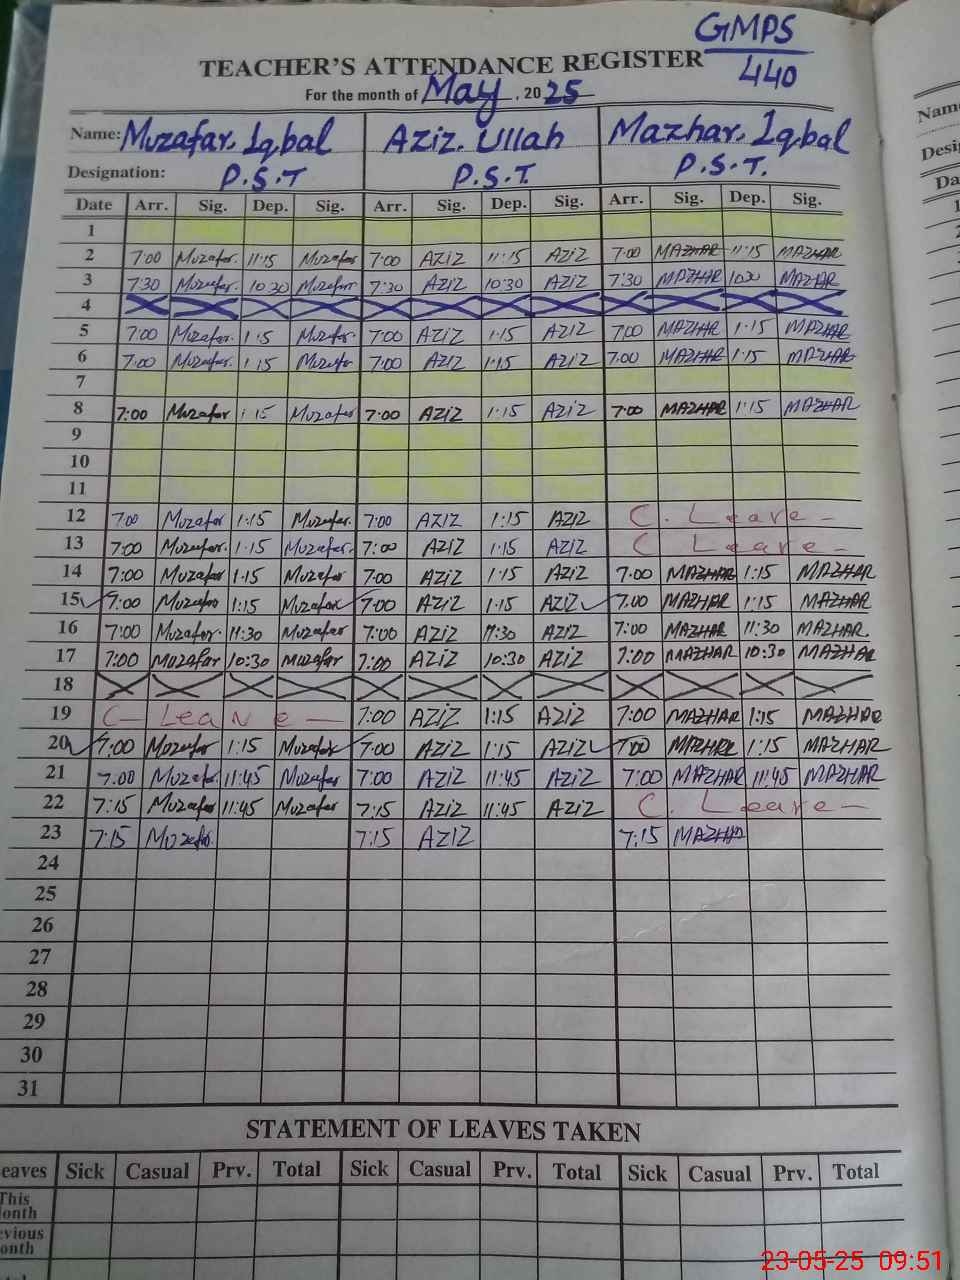 GMPS
440
TEACHER'S ATTENDANCE REGISTER
For the month of May, 2025
Name: Muzafar. Iqbal Aziz. Ullah Mazhar. Iqbal
Designation: P.S.T P.S.T. P.S.T.
Date Arr. Sig. Dep. Sig. Arr. Sig. Dep. Sig. Arr. Sig. Dep. Sig.
1
2 7:00 Muzafar. 11:15 Muzafar 7:00 AZIZ 11:15 AZIZ 7:00 MAZHAR 11:15 MAZHAR
3 7:30 Muzafar. 10:30 Muzafar 7:30 AZIZ 10:30 AZIZ 7:30 MAZHAR 10:30 MAZHAR
4
5 7:00 Muzafar. 1:15 Muzafar. 7:00 AZIZ 1:15 AZIZ 7:00 MAZHAR 1:15 MAZHAR
6 7:00 Muzafar. 1:15 Muzafar 7:00 AZIZ 1:15 AZIZ 7:00 MAZHAR 1:15 MAZHAR
7
8 7:00 Muzafar 1:15 Muzafar 7:00 AZIZ 1:15 AZIZ 7:00 MAZHAR 1:15 MAZHAR
9
10
11
12 7:00 Muzafar 1:15 Muzafar. 7:00 AZIZ 1:15 AZIZ C. Leave -
13 7:00 Muzafar. 1:15 Muzafar. 7:00 AZIZ 1:15 AZIZ C Leave -
14 7:00 Muzafar 1:15 Muzafar 7:00 AZIZ 1:15 AZIZ 7:00 MAZHAR 1:15 MAZHAR
15 7:00 Muzafar 1:15 Muzafar 7:00 AZIZ 1:15 AZIZ 7:00 MAZHAR 1:15 MAZHAR
16 7:00 Muzafar. 11:30 Muzafar 7:00 AZIZ 11:30 AZIZ 7:00 MAZHAR 11:30 MAZHAR.
17 7:00 Muzafar 10:30 Muzafar 7:00 AZIZ 10:30 AZIZ 7:00 MAZHAR 10:30 MAZHAR
18
19 C- Leave - 7:00 AZIZ 1:15 AZIZ 7:00 MAZHAR 1:15 MAZHAR
20 7:00 Muzafar 1:15 Muzafar 7:00 AZIZ 1:15 AZIZ 7:00 MAZHAR 1:15 MAZHAR
21 7:00 Muzafar. 11:45 Muzafar 7:00 AZIZ 11:45 AZIZ 7:00 MAZHAR 11:45 MAZHAR
22 7:15 Muzafar 11:45 Muzafar 7:15 AZIZ 11:45 AZIZ C. Leave -
23 7:15 Muzafar. 7:15 AZIZ 7:15 MAZHA
24
25
26
27
28
29
30
31
STATEMENT OF LEAVES TAKEN
eaves Sick Casual Prv. Total Sick Casual Prv. Total Sick Casual Prv. Total
This
onth
evious
onth
23-05-25 09:51